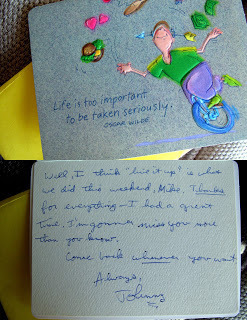 Life is too important
to be taken seriously.
OSCAR WILDE
Well, I think "live it up" is what
we did this weekend, Mike. Thanks
for everything - I had a great
time. I'm gonna miss you more
than you know.
Come back whenever you want
Always,
Johnny